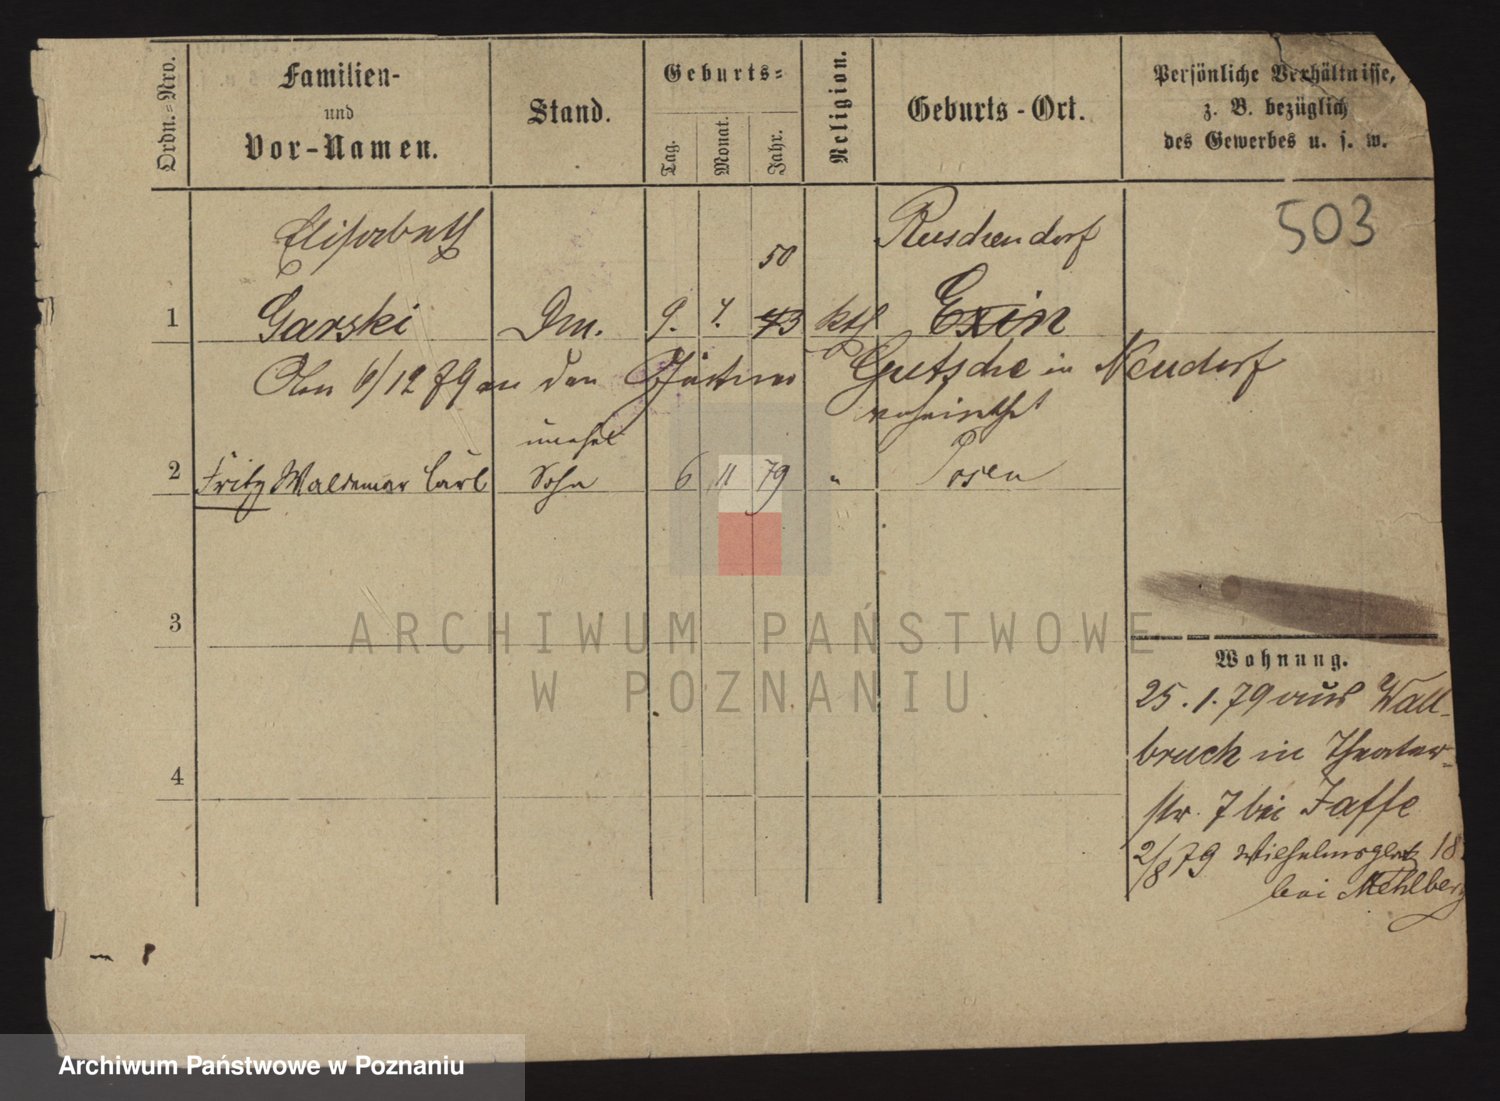 Ordn.-Nro.
Familien-
und
Vor-Namen.
Stand.
Geburts-
Tag.
Monat.
Jahr.
Religion.
Geburts-Ort.
Persönliche Verhältnisse,
z. B. bezüglich
des Gewerbes u. s. w.
503
Elisabeth
50
Ruschendorf
1 Garski Dm. 9. 7. 73 kth Exin
6/12 79 an den Gärtner Gutsche in Neudorf
verheirathet
unehel
2 Fritz Waldemar Carl Sohn 6 11 79 " Posen
3
4
Wohnung.
25.1.79 aus Wall-
bruch in Theater-
str. 7 bei Jaffe
2/8 79 Wilhelmsplatz 18
bei Mehlberg
ARCHIWUM PAŃSTWOWE
W POZNANIU
Archiwum Państwowe w Poznaniu